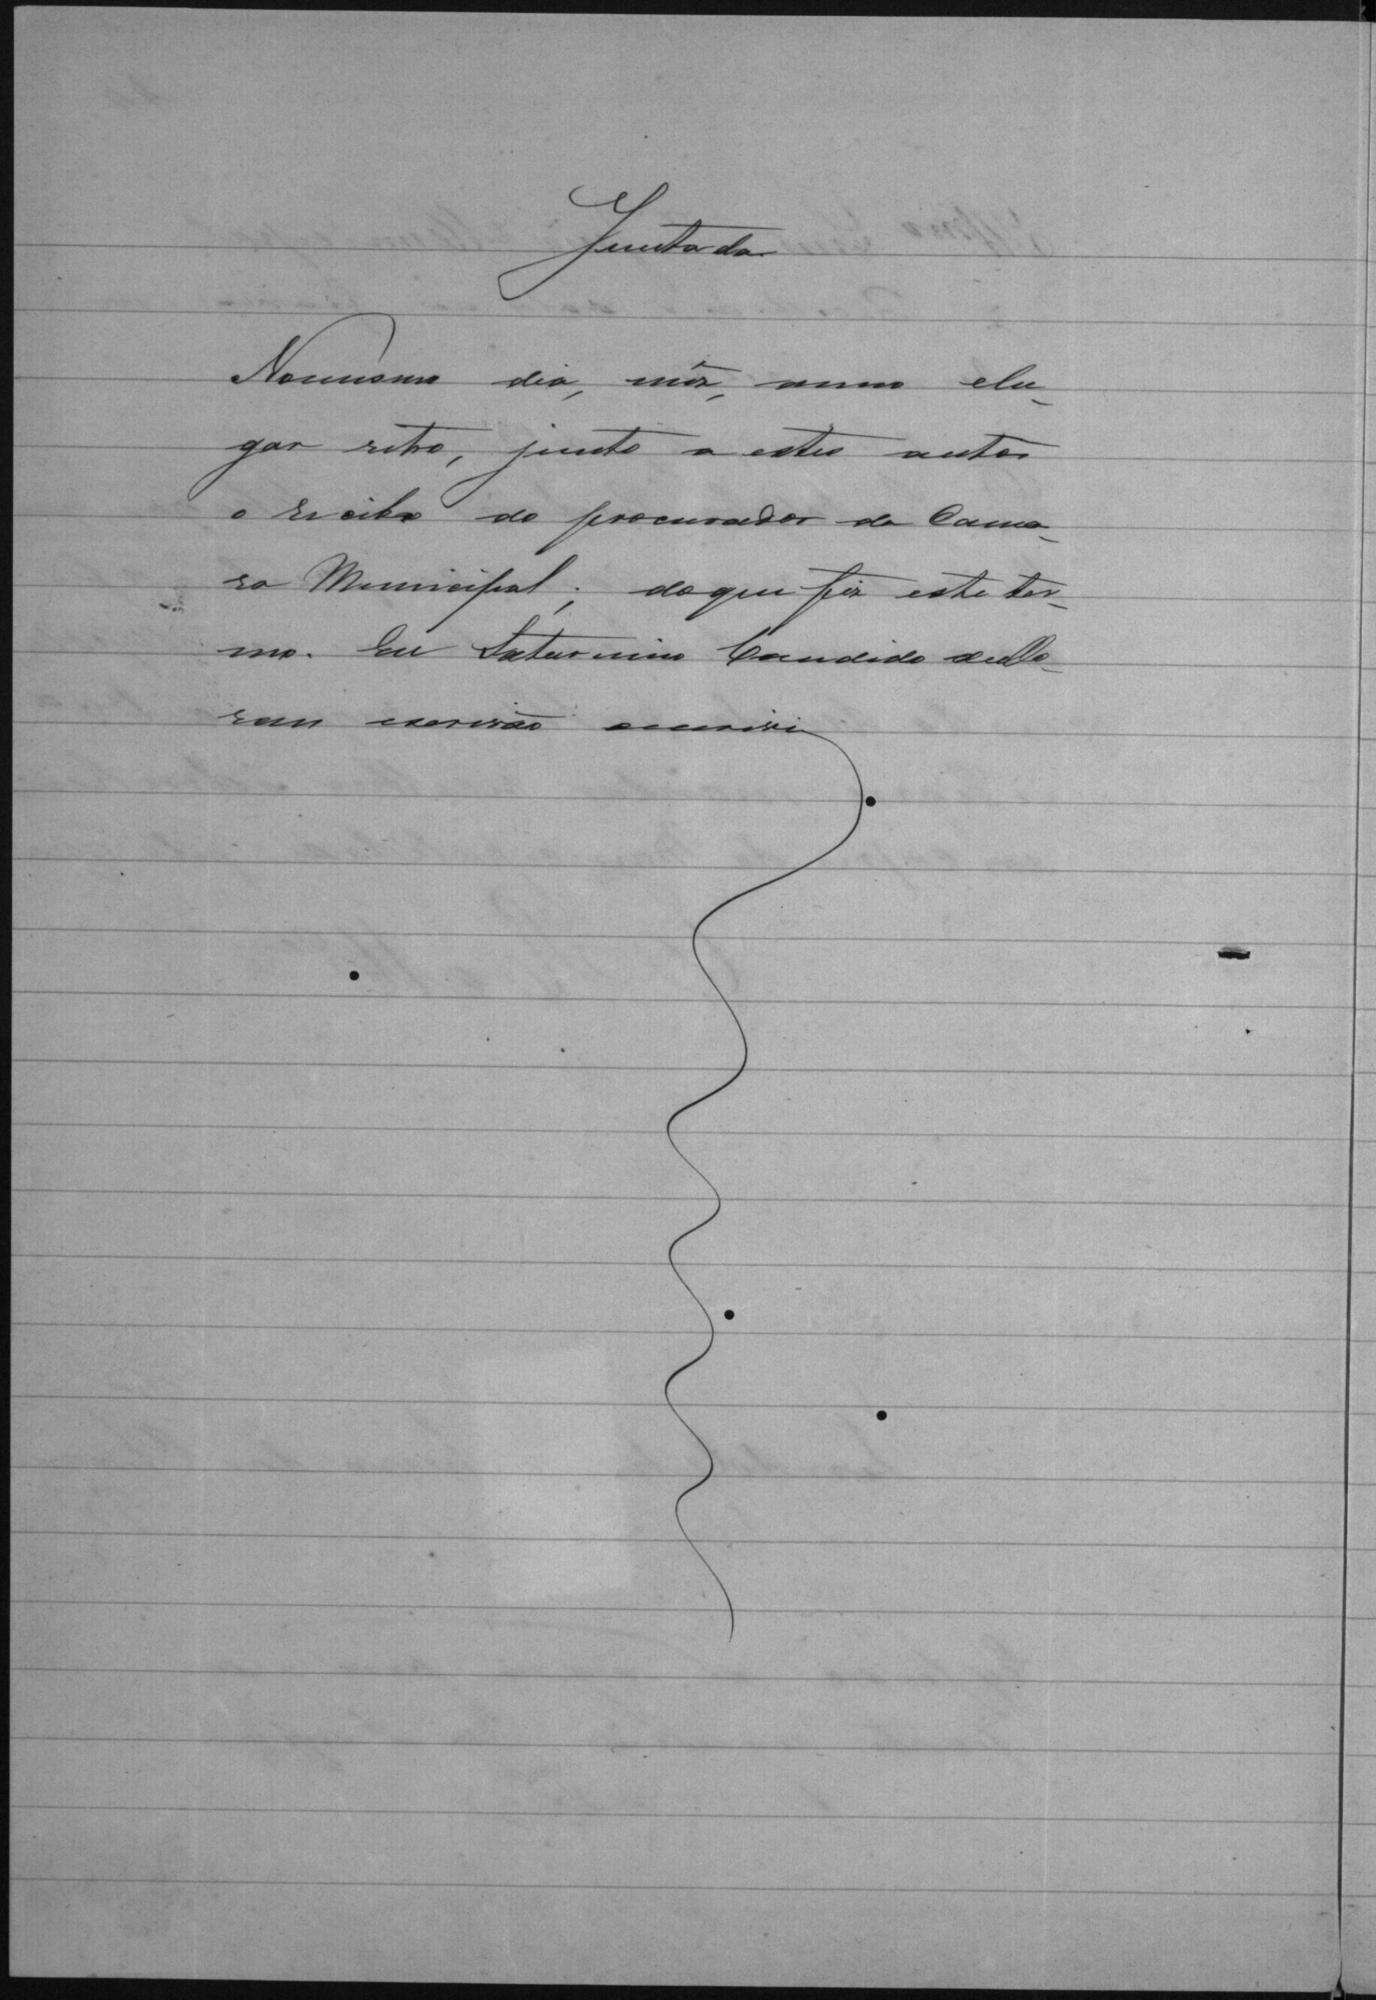 Juntada
Nomesmo dia, mêz, anno elu-
gar retro, junto a estes autos
o recibo do procurador da Cama-
ra Municipal; doque fiz este ter-
mo. Eu Saturnino Candido
escrivão escrivi